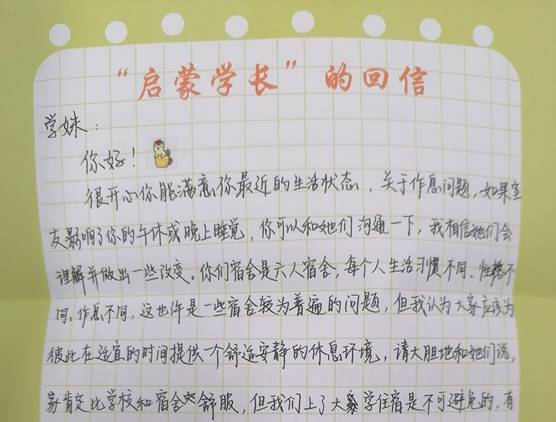 “启蒙学长”的回信
学妹：
你好！
很开心你能满意你最近的生活状态，关于作息问题，如果室
友影响了你的午休或晚上睡觉，你可以和她们沟通一下，我相信她们会
理解并做出一些改变。你们宿舍是六人宿舍，每个人生活习惯不同、性格不
同、作息不同，这也许是一些宿舍较为普遍的问题，但我认为大家应该为
彼此在适宜的时间提供一个舒适安静的休息环境，请大胆地和她们说，
家肯定比学校和宿舍舒服，但我们上了大学住宿是不可避免的，有